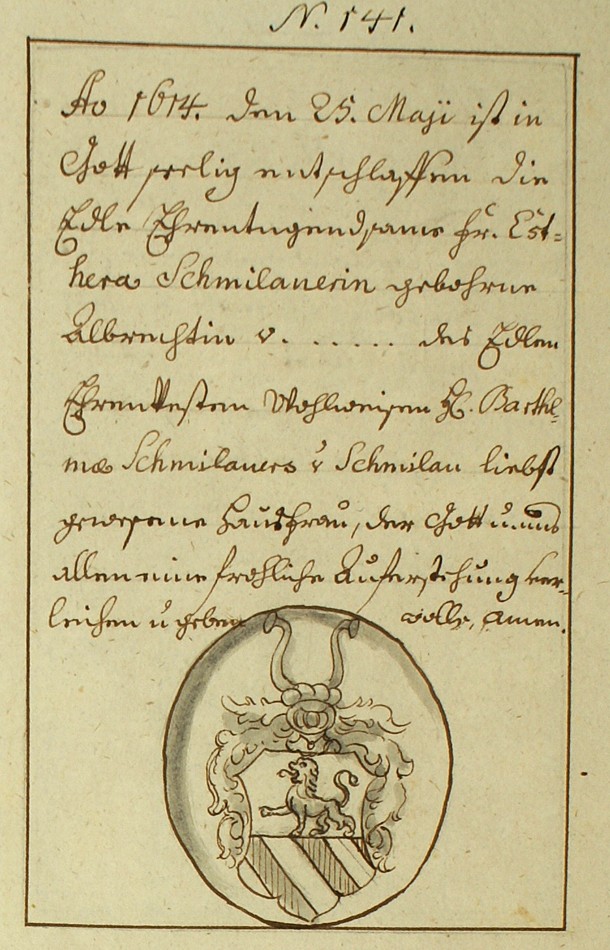 N. 141.
Ao 1614. den 25. Maji ist in
Gott seelig entschlaffen die
Edle Ehrentugendsame Fr. Est=
hera Schmilauerin gebohrne
Albrechtin v. . . . . . . des Edlen
Ehrenvesten Wohlweisen H. Barthl=
mæ Schmilauers v Schmilau liebst
gewesene Hausfrau, der Gott u. uns
allen eine fröhliche Auferstehung ver=
leihen u geben wolle, Amen.